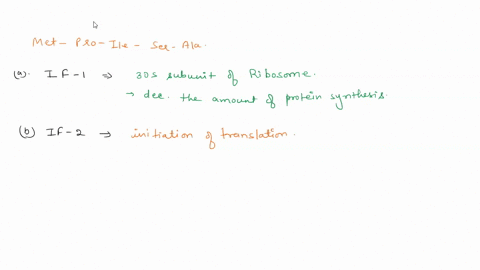 Met - Pro - Ile - Ser - Ala.
(a). IF-1 ⇒ 30s subunit of Ribosome.
→ dec. the amount of protein synthesis.
(b) IF-2 → initiation of translation.